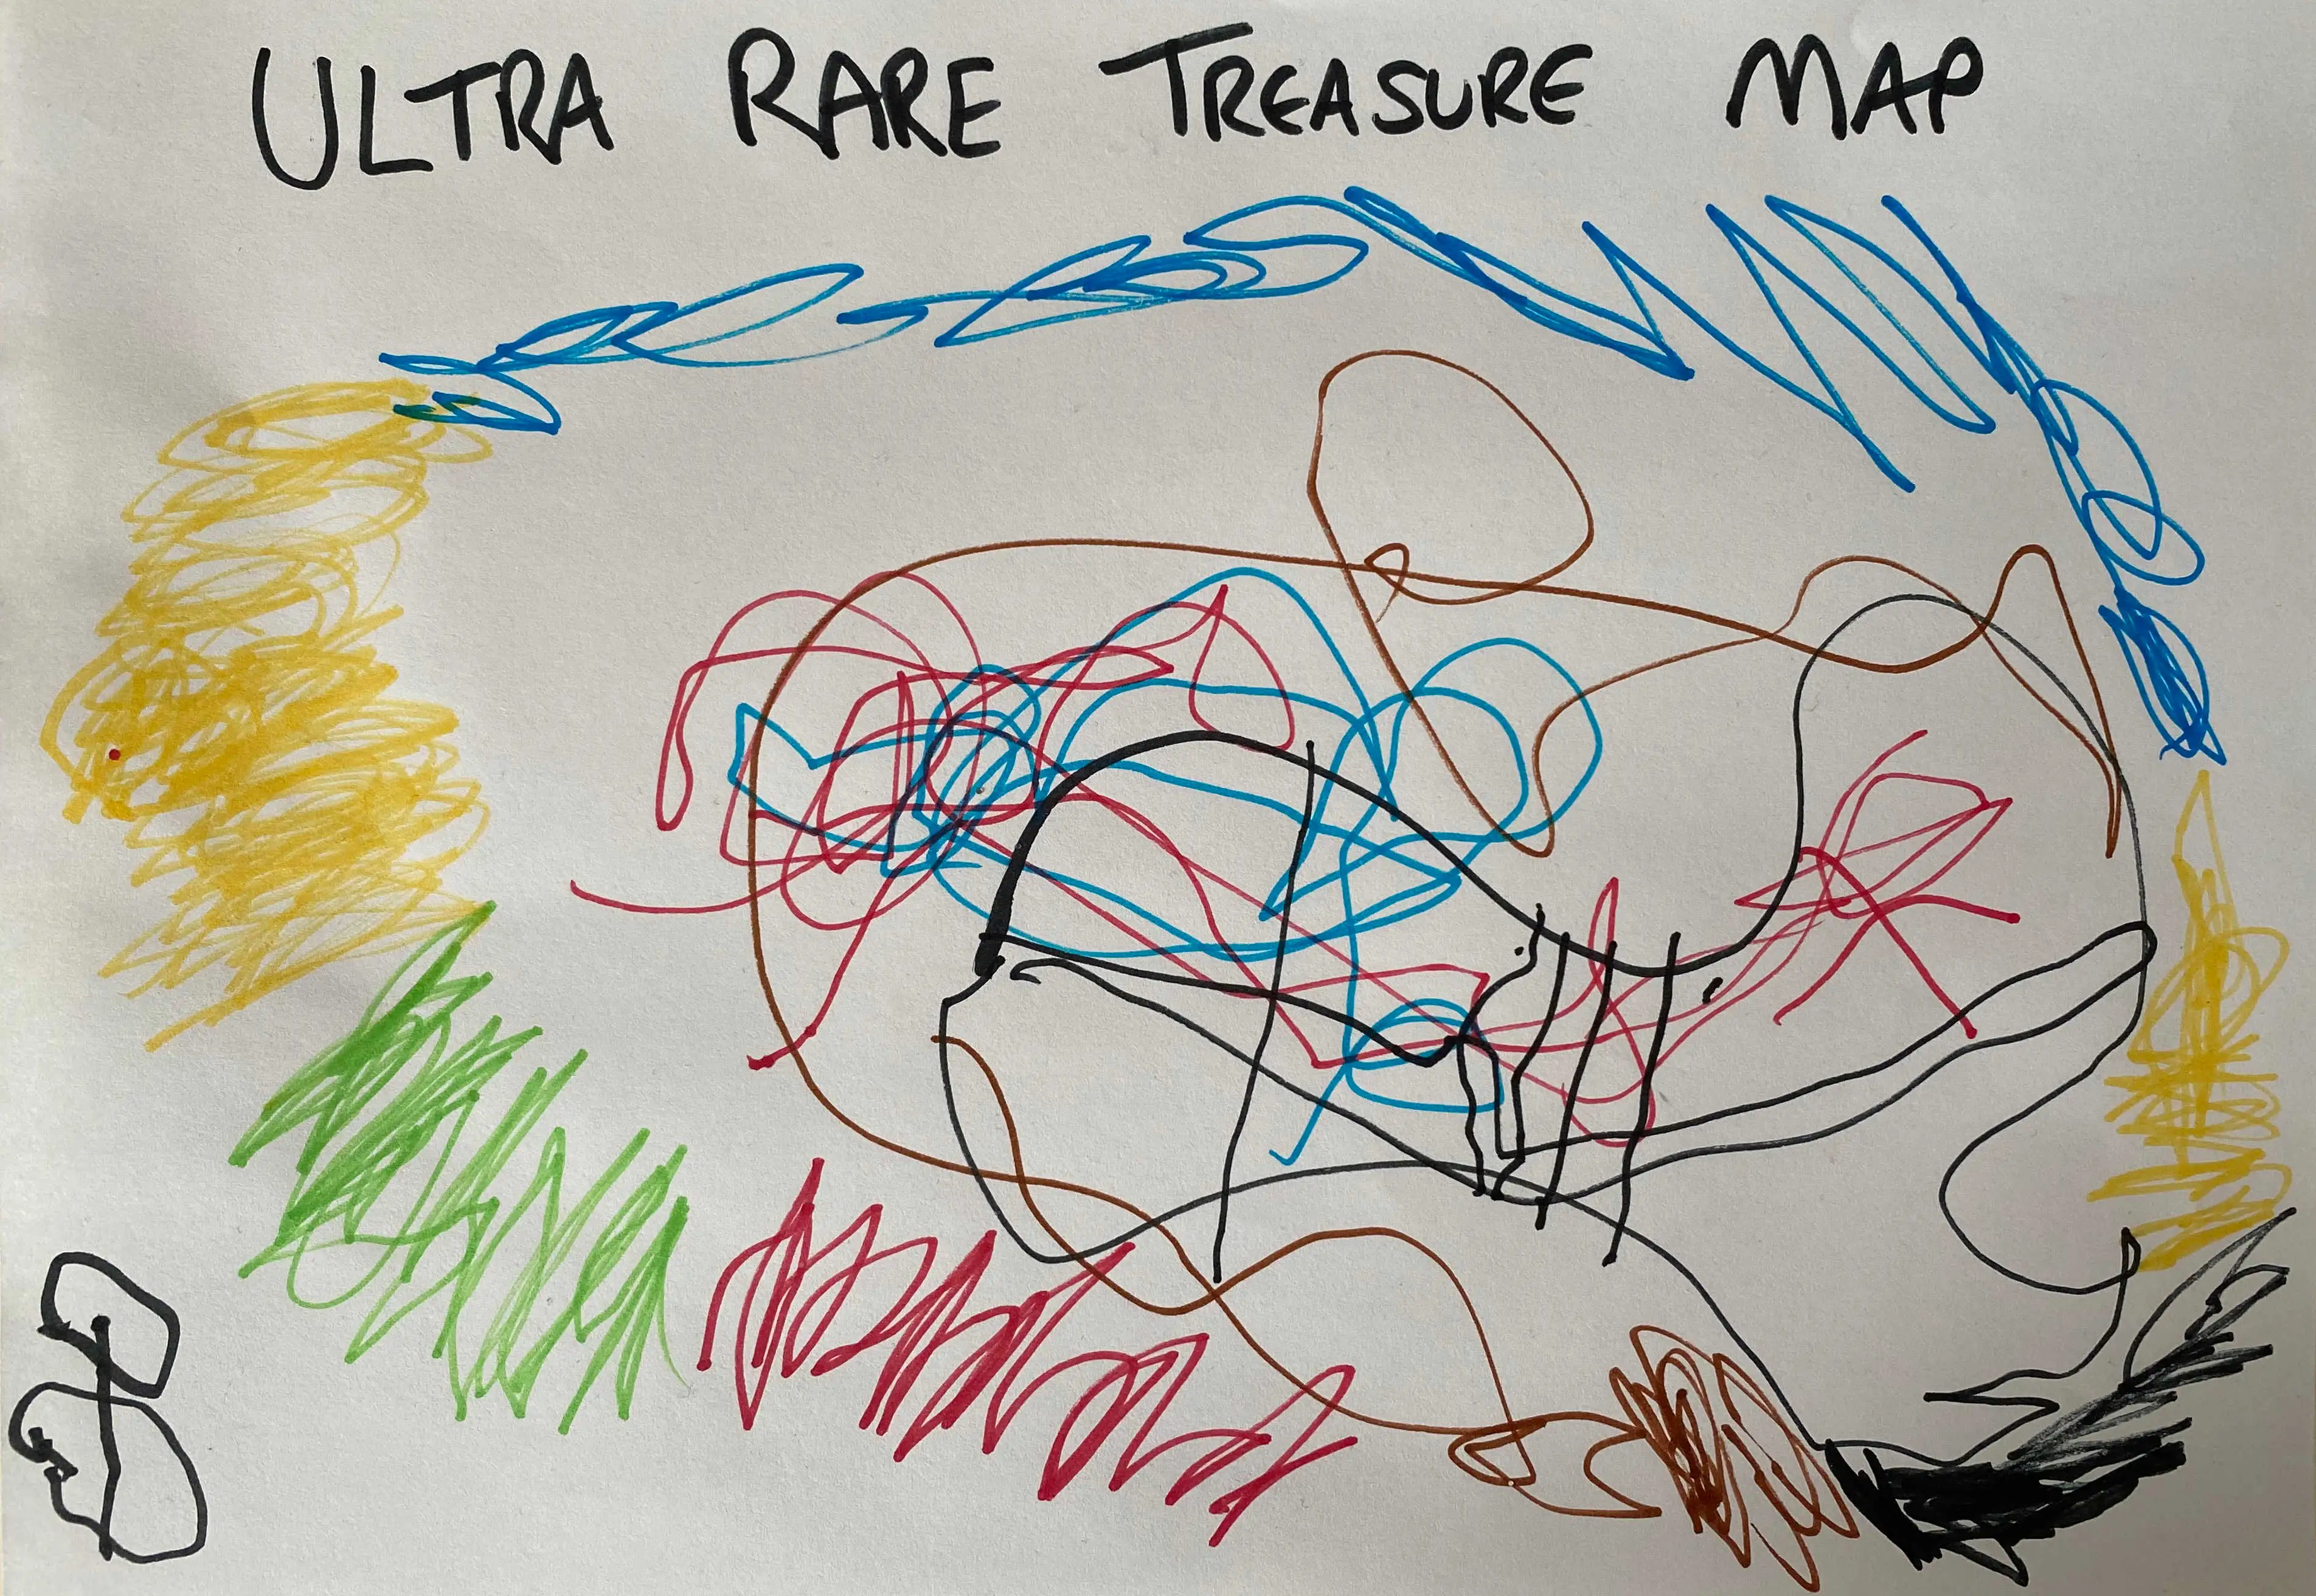 ULTRA RARE TREASURE MAP